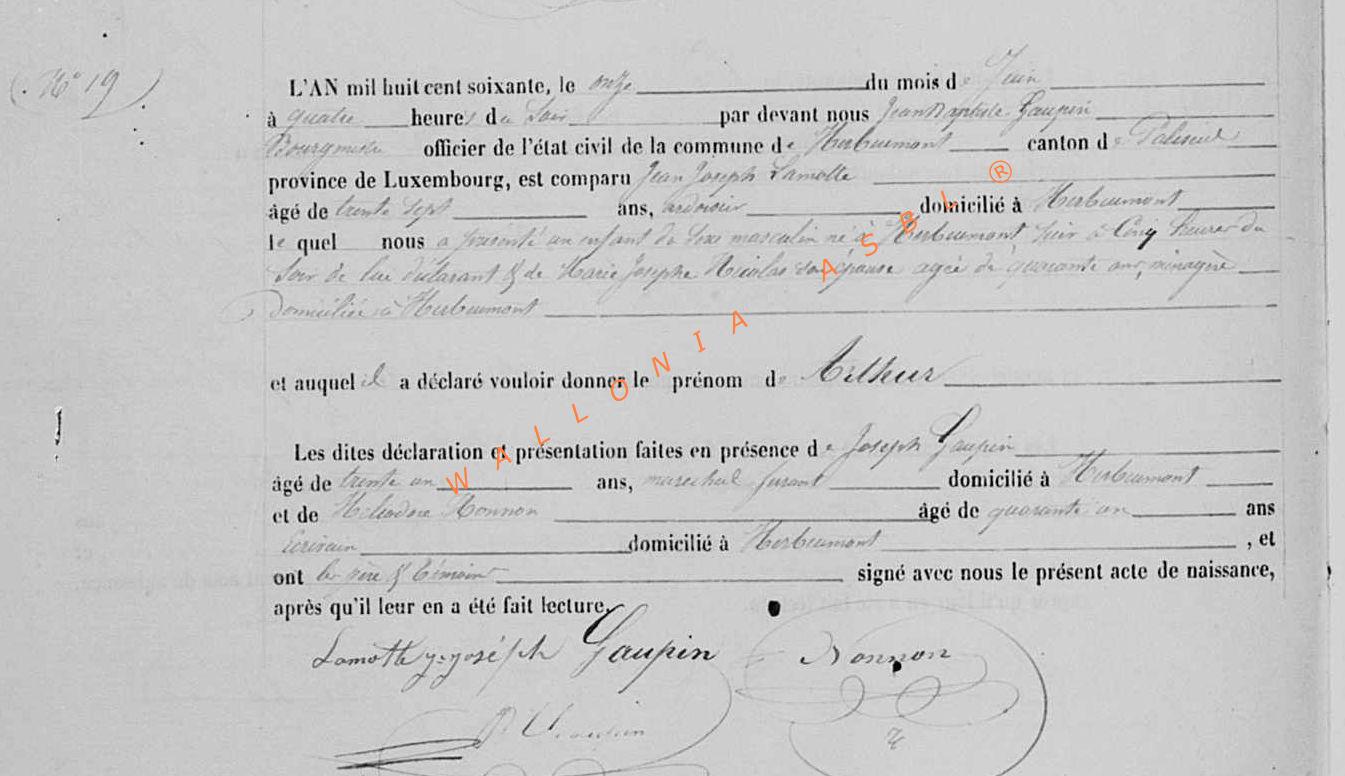 (N° 19)
L'AN mil huit cent soixante, le onze du mois de Juin
à quatre heures du Soir par devant nous Jean Baptiste Gaupin
Bourgmestre officier de l'état civil de la commune de Herbeumont canton de Paliseul
province de Luxembourg, est comparu Jean Joseph Lamotte
âgé de trente sept ans, ardoisier domicilié à Herbeumont
le quel nous a présenté un enfant du sexe masculin né à Herbeumont, hier à Cinq heures du
Soir de lui déclarant & de Marie Josephe Nicolas son épouse agée de quarante ans, ménagère
Domiciliée à Herbeumont
et auquel il a déclaré vouloir donner le prénom de Arthur
Les dites déclaration et présentation faites en présence de Joseph Gaupin
âgé de trente un ans, marechal ferant domicilié à Herbeumont
et de Héliodore Nonnon âgé de quarante un ans
Ecrivain domicilié à Herbeumont, et
ont les père & témoins signé avec nous le présent acte de naissance,
après qu'il leur en a été fait lecture.
Lamotte j. joséph Gaupin Nonnon
Gaupin
WALLONIA ASBL ®